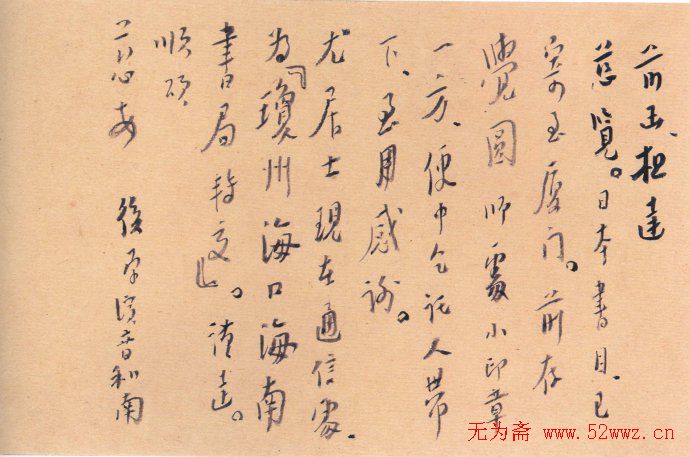 前函、想達
慈覽。日本書目、已
寄至廈门。前存
覺圓師處小印章
一方、便中乞託人帶
下、至用感謝。
尤居士現在通信處、
为『瓊州海口海南
書局轉交』。清達。
順頌
慈安
後學演音和南
无为斋 www.52wwz.cn